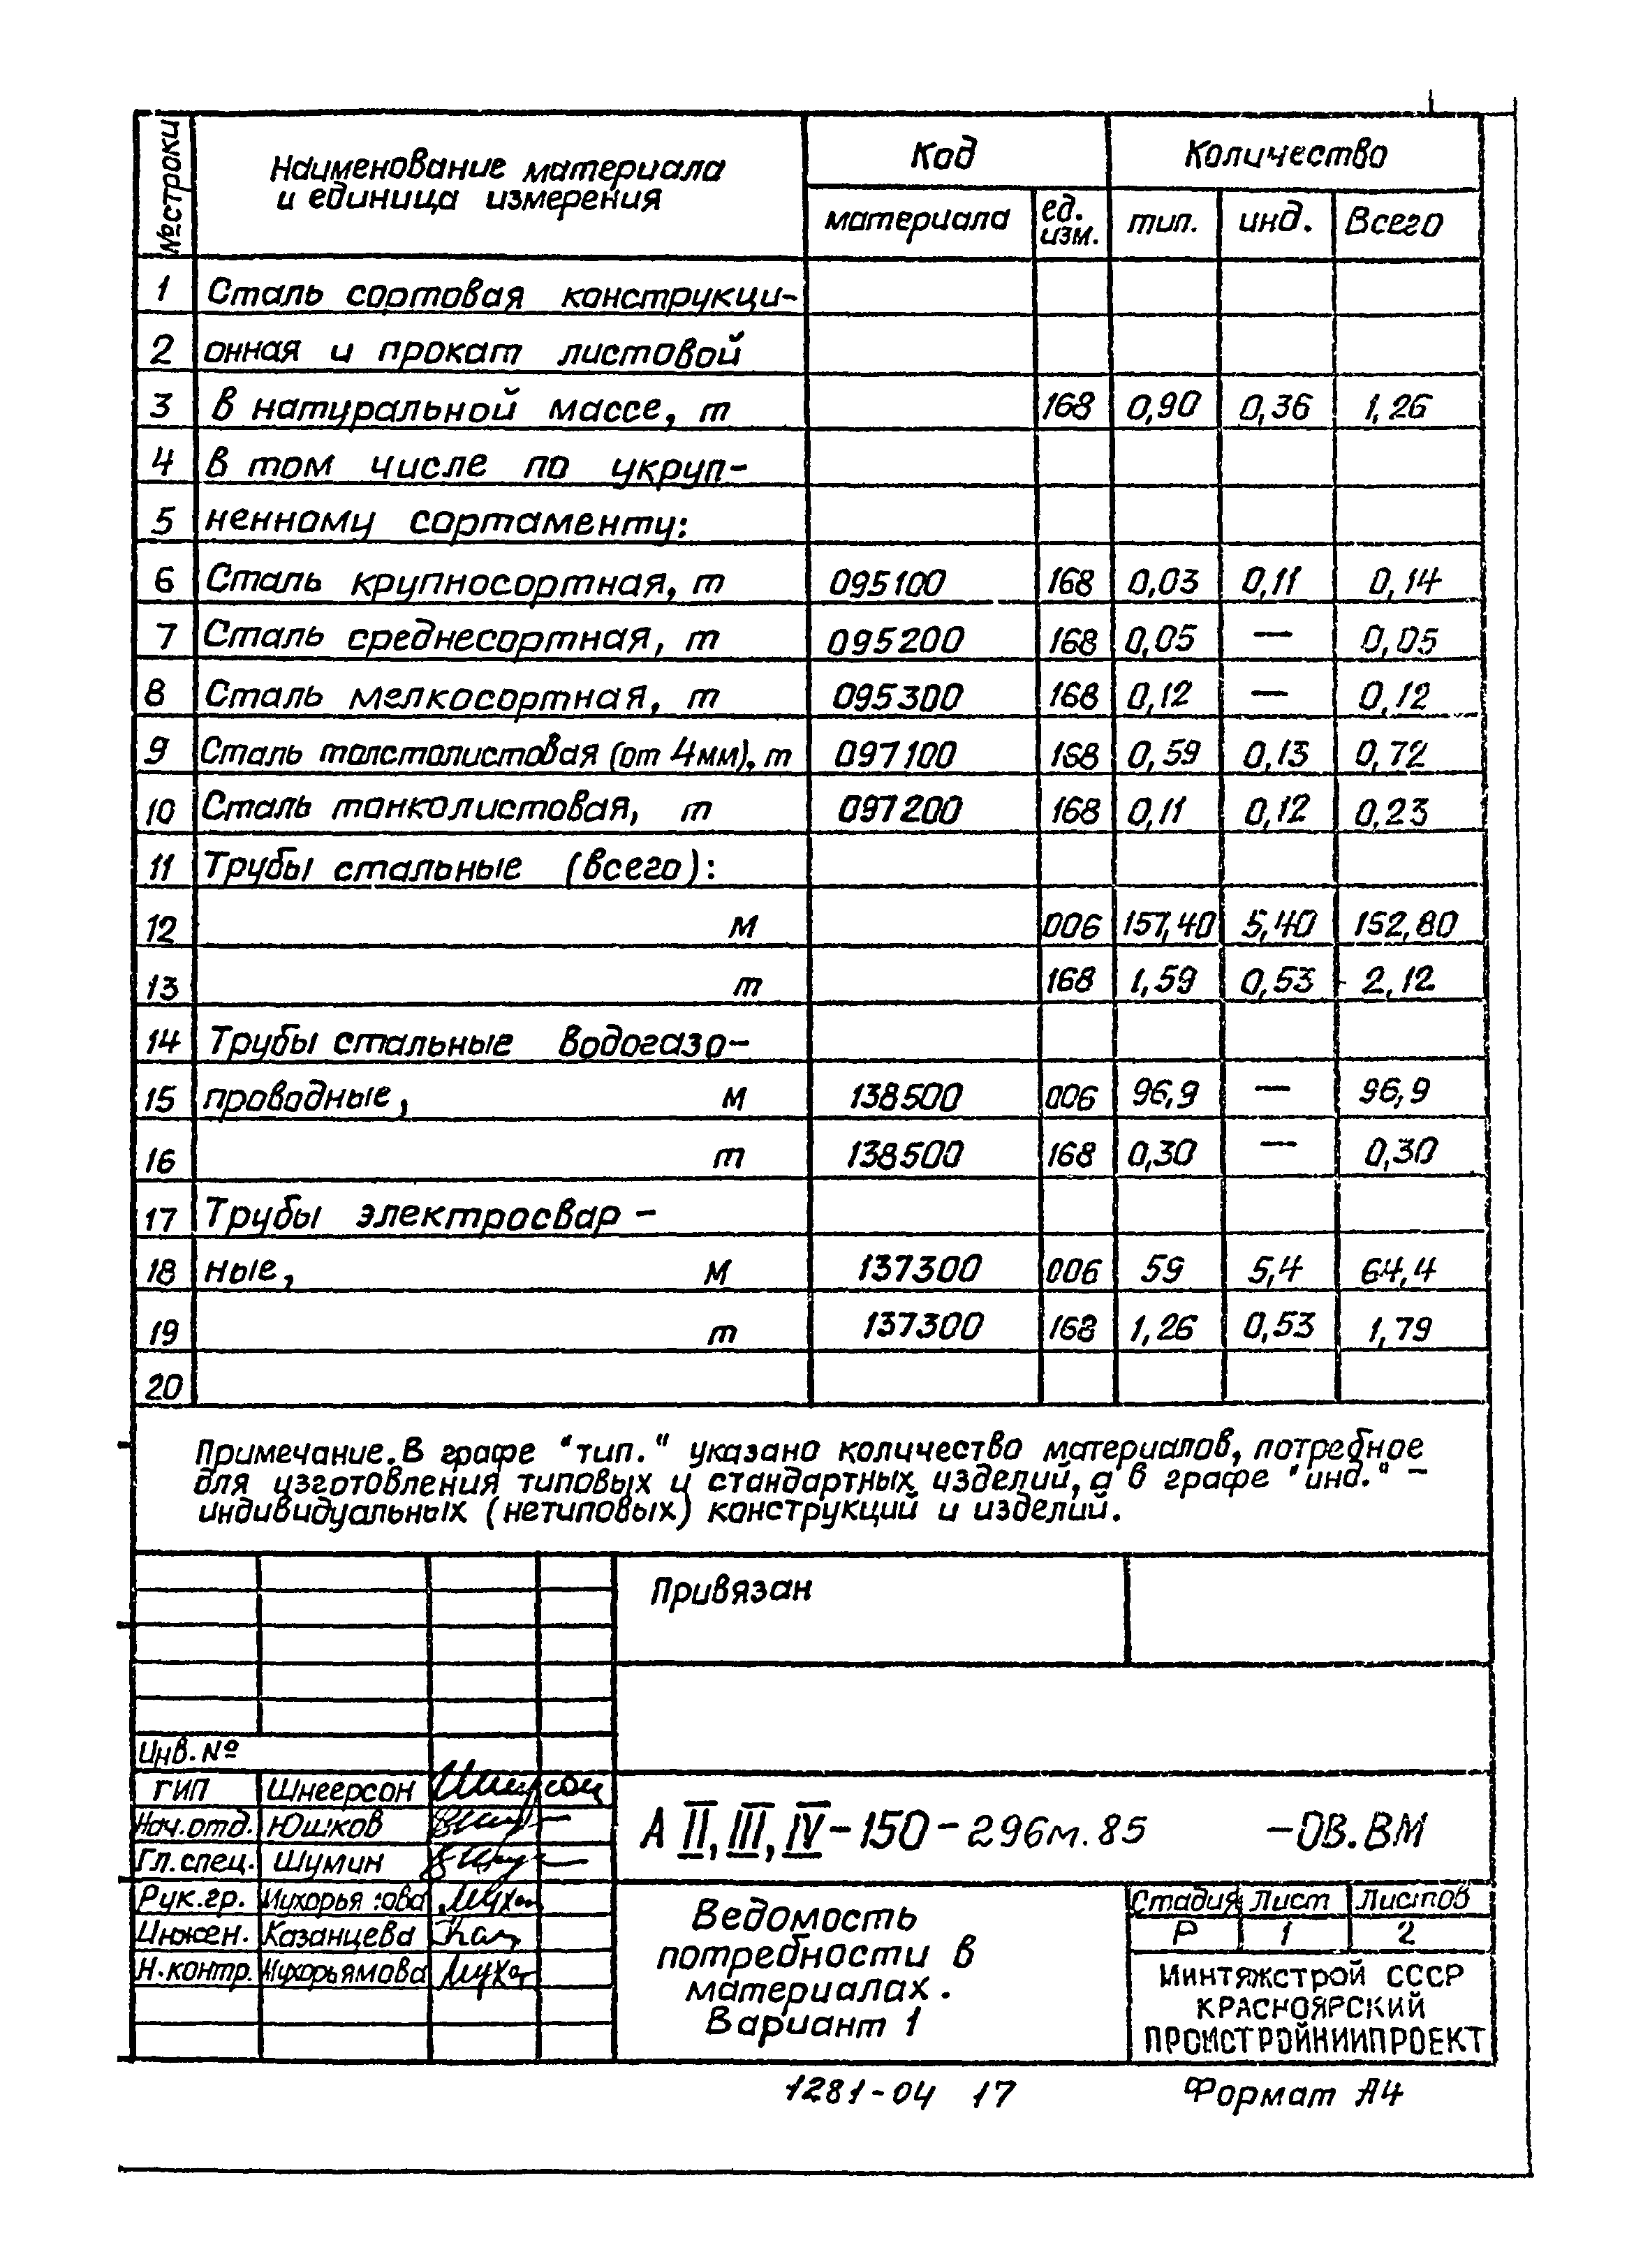 № строки
Наименование материала
и единица измерения
Код
Количество
материала ед. изм. тип. инд. Всего
1 Сталь сортовая конструкци-
2 онная и прокат листовой
3 в натуральной массе, т 168 0,90 0,36 1,26
4 в том числе по укруп-
5 ненному сортаменту:
6 Сталь крупносортная, т 095100 168 0,03 0,11 0,14
7 Сталь среднесортная, т 095200 168 0,05 — 0,05
8 Сталь мелкосортная, т 095300 168 0,12 — 0,12
9 Сталь толстолистовая (от 4мм), т 097100 168 0,59 0,13 0,72
10 Сталь тонколистовая, т 097200 168 0,11 0,12 0,23
11 Трубы стальные (всего):
12 м 006 157,40 5,40 152,80
13 т 168 1,59 0,53 2,12
14 Трубы стальные водогазо-
15 проводные, м 138500 006 96,9 — 96,9
16 т 138500 168 0,30 — 0,30
17 Трубы электросвар-
18 ные, м 137300 006 59 5,4 64,4
19 т 137300 168 1,26 0,53 1,79
20
Примечание. В графе "тип." указано количество материалов, потребное
для изготовления типовых и стандартных изделий, а в графе "инд." –
индивидуальных (нетиповых) конструкций и изделий.
Привязан
Инв. №
ГИП Шнеерсон
Нач.отд. Юшков
Гл.спец. Шумин
Рук.гр.
Инжен. Казанцева
Н.контр. Мухорьямова
А II, III, IV – 150 – 296м.85 –ОВ.ВМ
Ведомость
потребности в
материалах.
Вариант 1
Стадия Лист Листов
Р 1 2
Минтяжстрой СССР
КРАСНОЯРСКИЙ
ПРОМСТРОЙНИИПРОЕКТ
1281-04 17
Формат А4